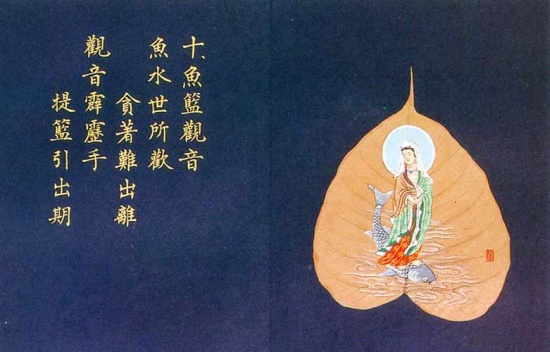 十、魚籃觀音
魚水世所歡
貪著難出離
觀音霹靂手
提籃引出期